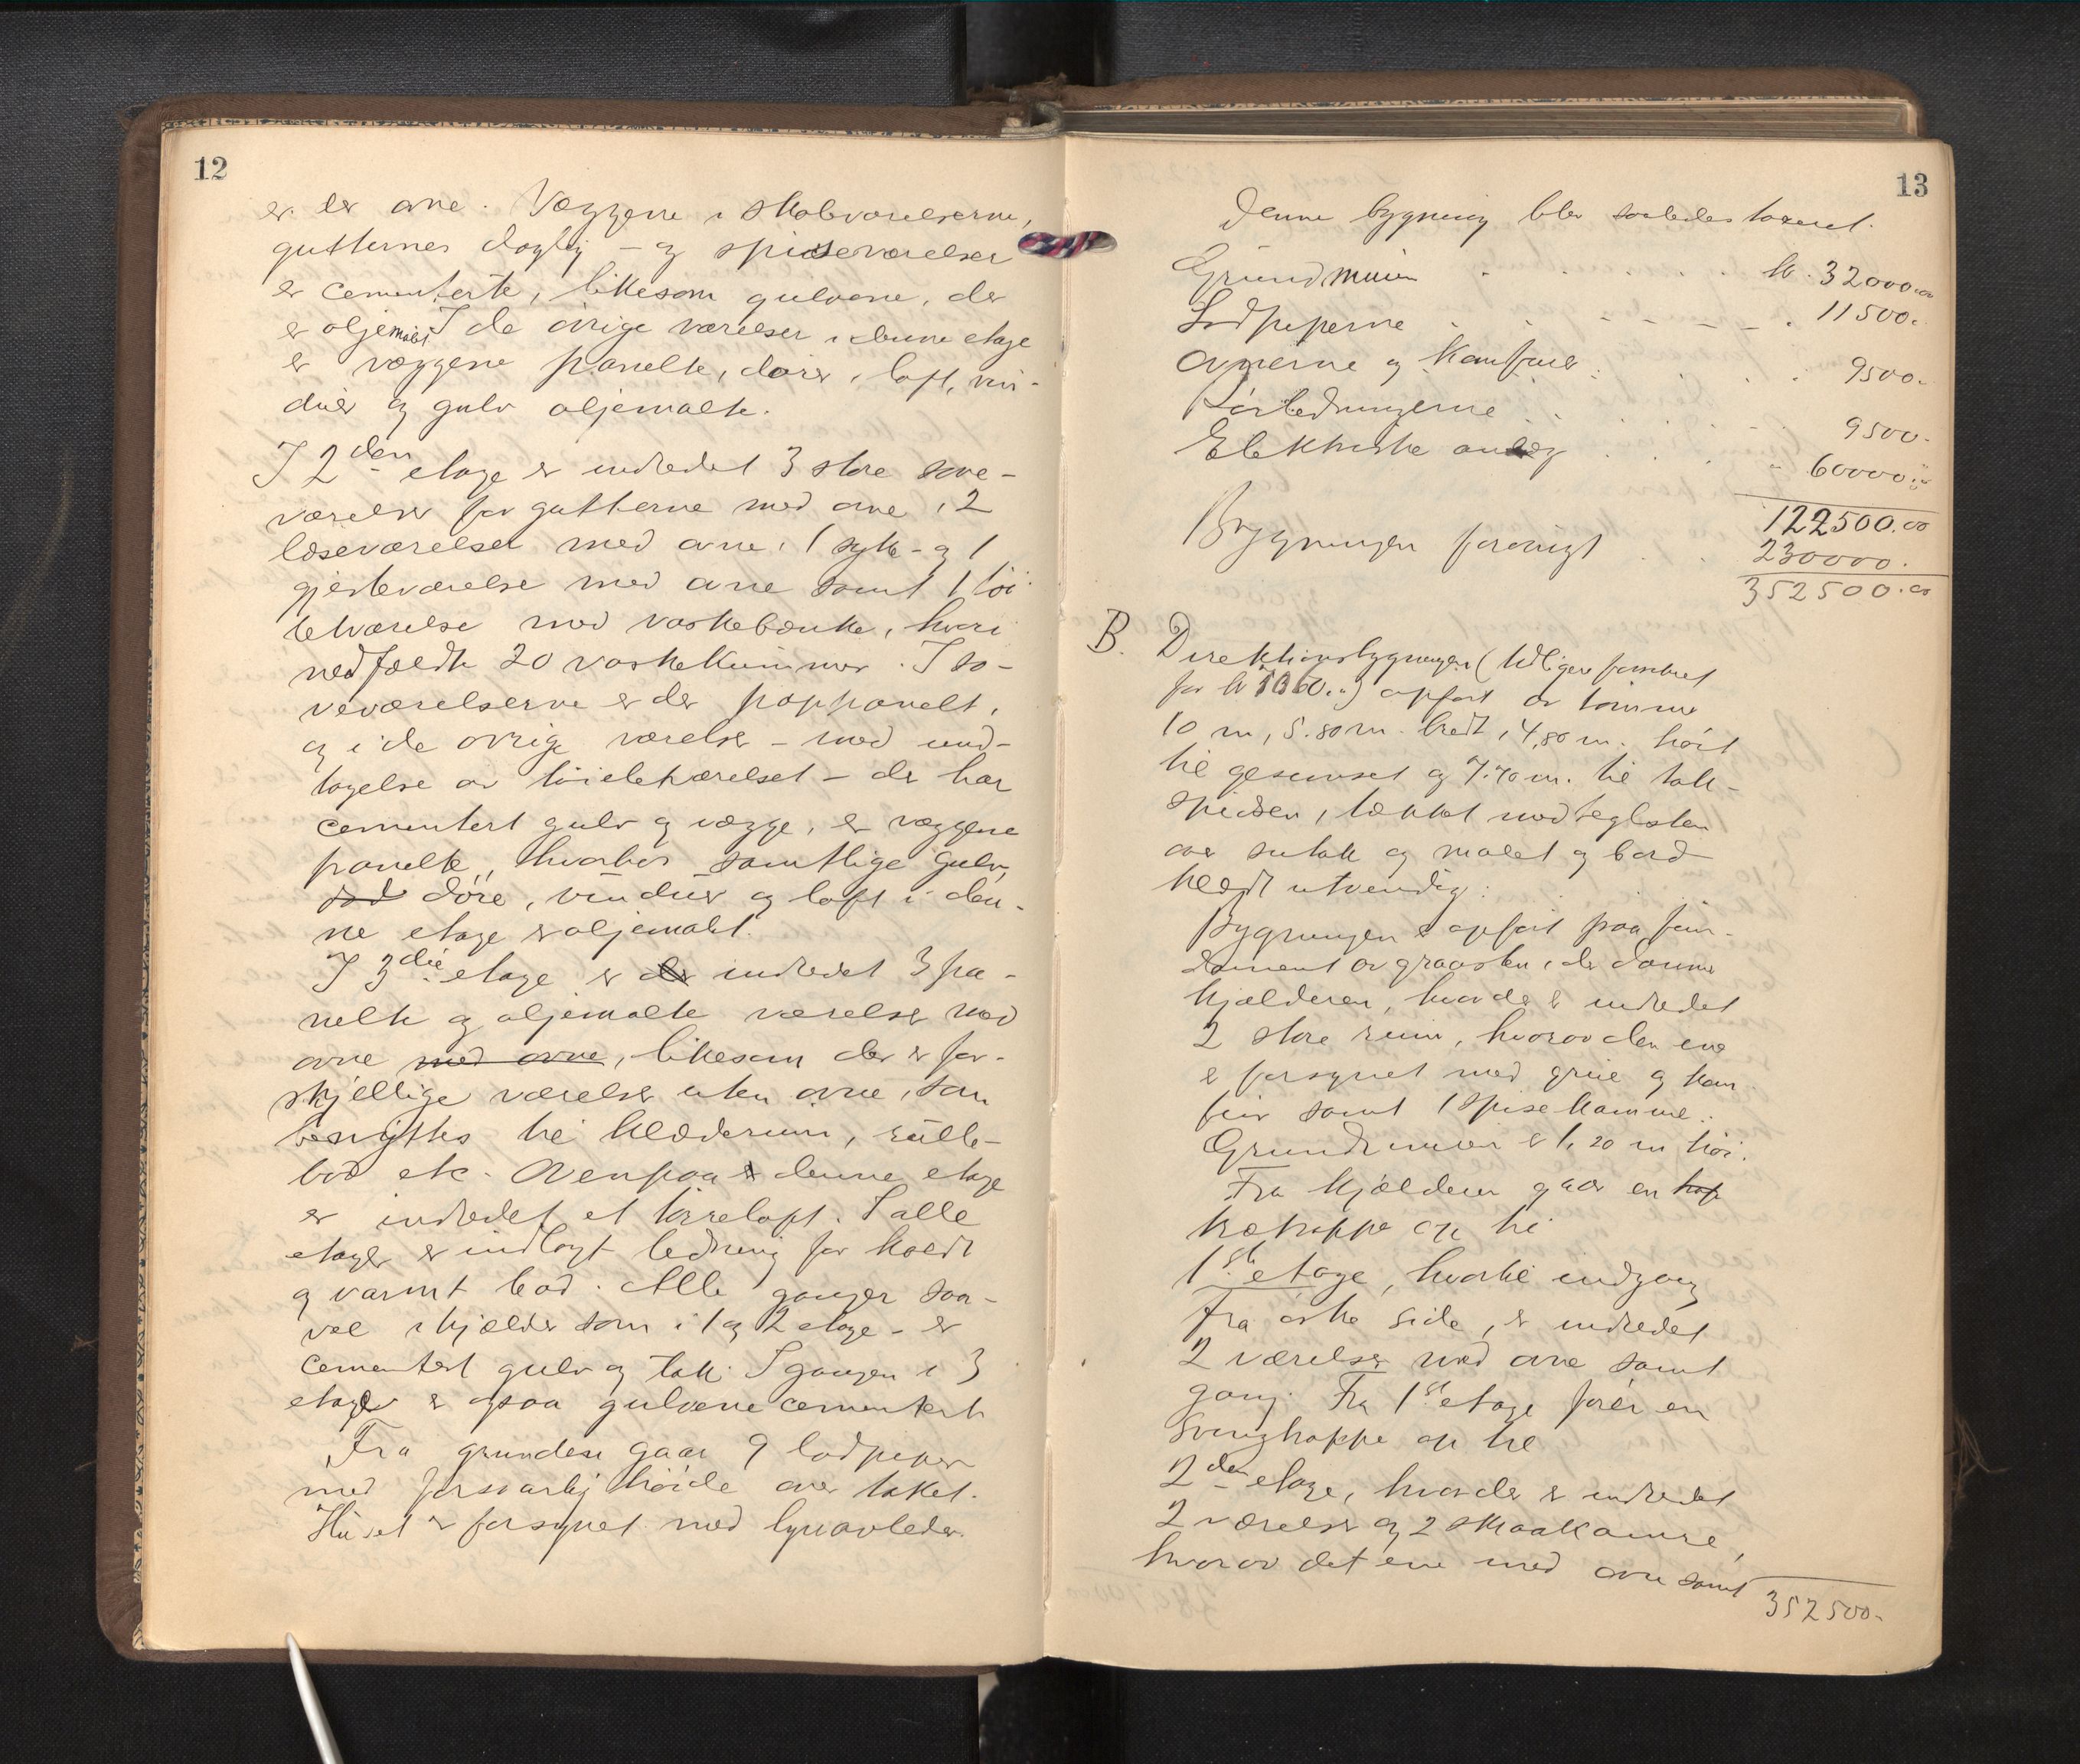 12
er der ovne. Væggene i skoleværelserne,
gutternes daglig- og spiseværelser
er cementerte, likesom gulvene, der
er oljemalt. I de øvrige værelser i denne etage
er væggene panelte, dører, loft, vin-
duer og gulv oljemalte.
I 2den etage er indredet 3 store sove-
værelser for gutterne med ovne, 2
læseværelser med ovne, 1 syke- og 1
gjesteværelse med ovne samt 1 toi-
letværelse med vaskebænke, hvori
nedfældte 20 vaskekummer. I so-
veværelserne er der pappanelt,
og i de øvrige værelser - med und-
tagelse av toiletværelset - der har
cementert gulv og vægge, er væggene
panelte, hvorhos samtlige gulv,
døre, vinduer og loft i den-
ne etage er oljemalt.
I 3die etage er der indredet 3 pa-
nelte og oljemalte værelser med
ovne med ovne, likesom der er for-
skjellige værelser uten ovne, som
benyttes til klæderum, rulle-
bod etc. Ovenpaa denne etage
er indredet et tørreloft. I alle
etager er indlagt ledning for koldt
og varmt bad. Alle ganger saa-
vel i kjælder som i 1 og 2 etage - er
cementert gulv og tak. I gangen i 3
etage er ogsaa gulvene cementert
Fra grunden gaar 9 lodpiper
med forsvarlig høide over taket.
Huset er forsynet med lynavleder.
13
Denne bygning blev saaledes taxeret.
Grundmuren kr. 32000.00
Lodpiperne 11500.
Ovnerne og kamfuer 9500.
Rørledningerne 9500.
Elektriske anlæg " 60000.
122500.00
Bygningen forøvrigt 230000.
352500.00
B. Direktionsbygningen (tidligere forsikret
for kr. ) opført av tømmer
10 m, 5.80 m. bredt, 4,80 m. høit
til gesimset og 7.70 m. til tak-
spidsen, tækket med teglsten
over sutak og malet og bord-
klædt utvendig.
Bygningen er opført paa fun-
dament av graasten, der danner
kjælderen, hvor der er indredet
2 store rum, hvorav den ene
er forsynet med grue og kom-
fur samt 1 spisekammer.
Grundmuren er 1,20 m høi.
Fra kjælderen gaar en
trætrappe op til
1ste etage, hvortil indgang
fra østre side, er indredet
2 værelser med ovne samt
gang. Fra 1ste etage fører en
svingtrappe op til
2den etage, hvor der er indredet
2 værelser og 2 smaakamre,
hvorav det ene med ovn samt
352500.-